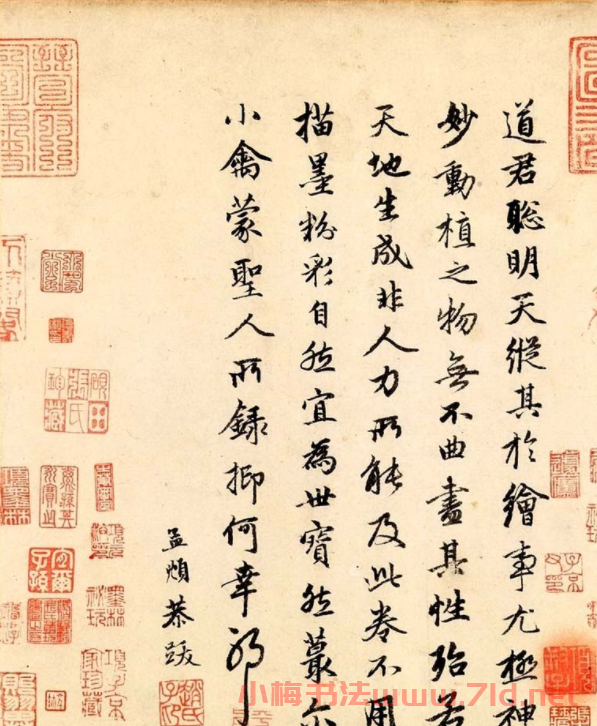 道君聰明天縱其於繪事尤極神
妙動植之物無不曲盡其性殆若
天地生成非人力所能及此卷不用
描墨粉彩自然宜為世寶然蕞尔
小禽蒙聖人所録抑何幸耶
孟頫恭跋
宜爾子孫
項子京家珍藏
小梅书法www.7ld.net